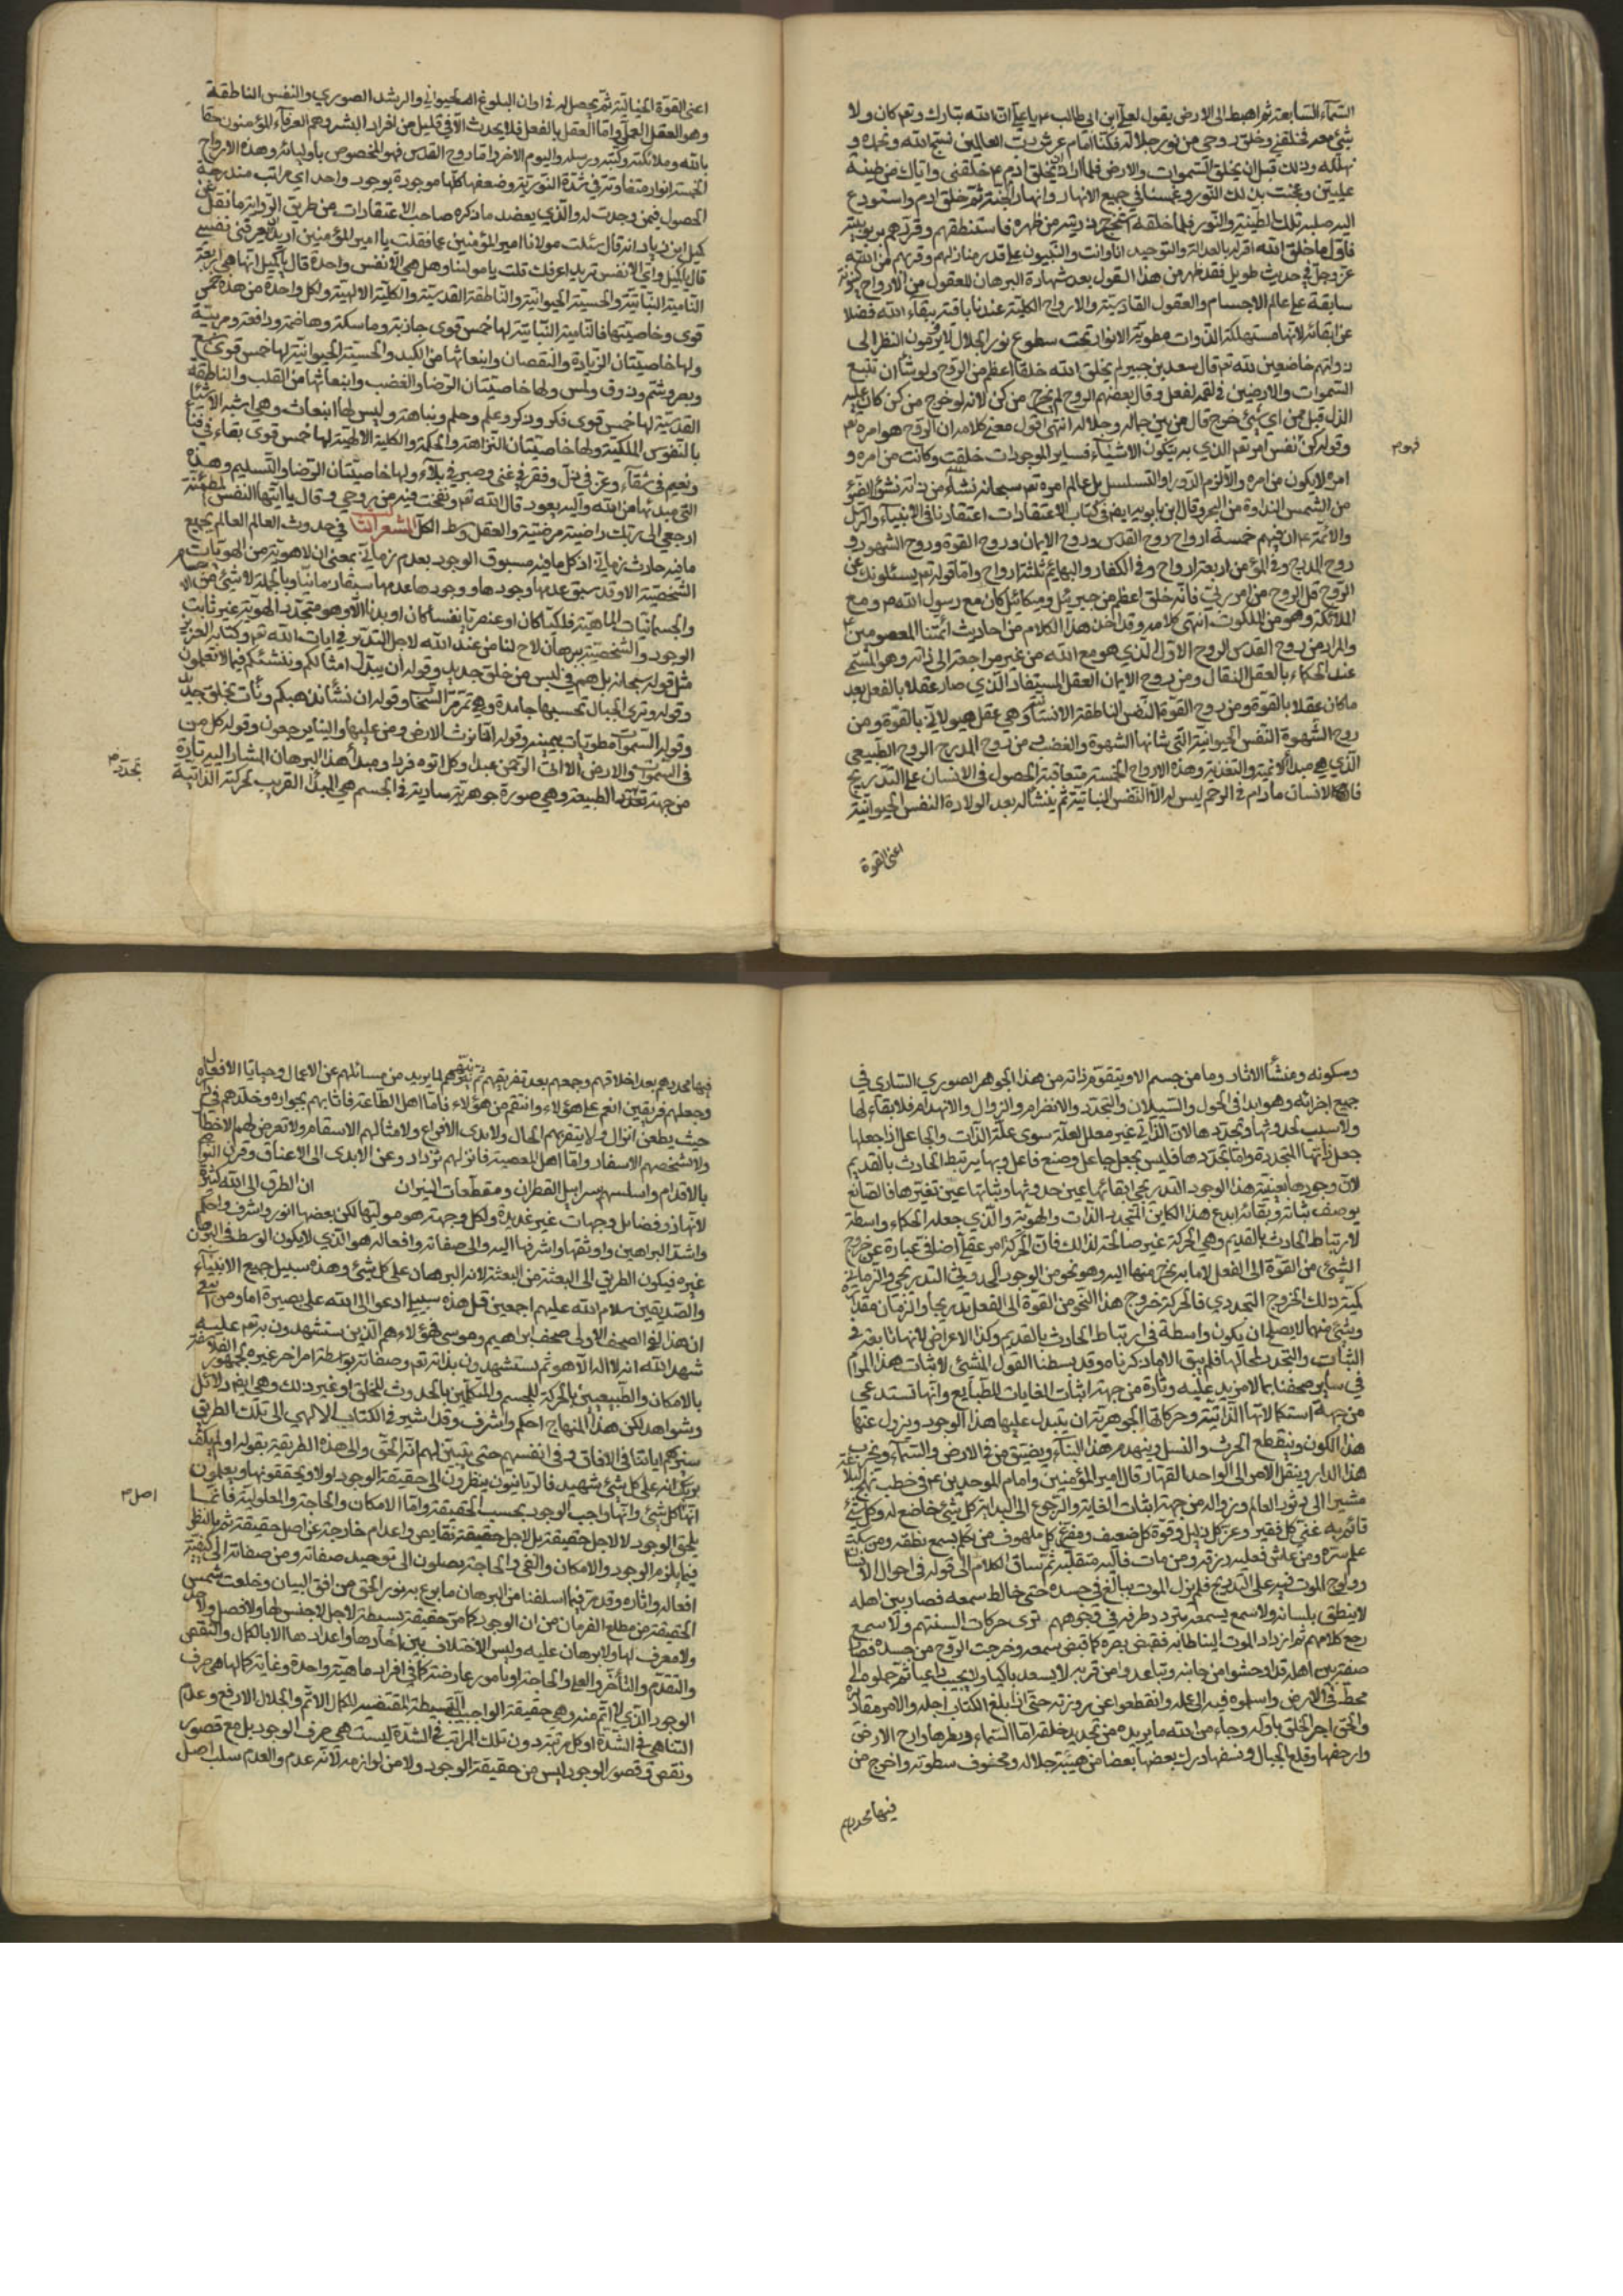 السماء السابعة ثم اهبط الى الارض يقول لعلى ابن ابى طالب ع يا على ان الله تبارك وتع كان ولا
شئ معه فخلقنى وخلق روحى من نور جلاله فكنا امام عرش رب العالمين نسبح الله ونحمده و
نهلله وذلك قبل ان يخلق السموات والارض فلما اراد ان يخلق ادم ع خلقنى واياك من طينة
عليين وعجنت بذلك النور وغمسنا فى جميع الانهار وانهار الجنة ثم خلق ادم واستودع
اليه صلبه تلك الطينة والنور فلما خلقه استخرج ذريته من ظهره فاستنطقهم وقررهم بربوبيته
فاول ما خلق الله اقر له بالعدل والتوحيد انا وانت والنبيون على قدر منازلهم وقربهم من الله
عز وجل فى حديث طويل فقد ظهر من هذا القول بعد شهادة البرهان للعقول من الارواح كينونة
سابقة على عالم الاجسام والعقول القادسة والارواح الكلية عندنا باقية ببقاء الله فضلا
عن ابقائه لانها مستهلكة الذوات مطوية الانوار تحت سطوع نور الجلال لا يرومون النظر الى
ذواتهم خاضعين لله تع قال سعد بن جبير لم يخلق الله خلقا اعظم من الروح ولو شاء ان تبلع
السموات والارضين فى لقمة لفعل وقال بعضهم الروح لم يخرج من كن لانه لو خرج من كن كان عليه
الذل قيل فمن اى شئ خرج قال من بين جماله وجلاله انتهى اقول معنى كلامه ان الروح هو امره تع
فهو م
وقوله كن نفس امره تع الذى به يتكون الاشياء فساير الموجودات خلقت وكانت من امره و
امره لا يكون من امره والا لزم الدور او التسلسل بل عالم امره تع سبحانه نشاء من ذاته نشو الضوء
من الشمس والنداوة من البحر وقال ابن بابويه ايضا فى كتاب الاعتقادات اعتقادنا فى الانبياء والرسل
والائمة ع ان فيهم خمسة ارواح روح القدس وروح الايمان وروح القوة وروح الشهوة و
روح المدرج وفى المؤمن اربعة ارواح وفى الكفار والبهائم ثلثة ارواح واما قوله تع يسئلونك عن
الروح قل الروح من امر ربى فانه خلق اعظم من جبرئيل وميكائيل كان مع رسول الله ص ومع
الملائكة وهو من الملكوت انتهى كلامه وقد اخذ هذا الكلام من احاديث ائمتنا المعصومين ع
والمراد من روح القدس الروح الاول الذى هو مع الله من غير مراجعة الى ذاته وهو المسمى
عند الحكماء بالعقل الفعال ومن روح الايمان العقل المستفاد الذى صار عقلا بالفعل بعد
ما كان عقلا بالقوة ومن روح القوة النفس الناطقة الانسانية وهى عقل هيولانى بالقوة ومن
روح الشهوة النفس الحيوانية التى شانها الشهوة والغضب ومن روح المدرج الروح الطبيعى
الذى هى مبدأ التنمية والتغذية وهذه الارواح الخمسة متعاقبة الحصول فى الانسان على التدريج
فان الانسان مادام فى الرحم ليس له الا النفس النباتية ثم ينشأ له بعد الولادة النفس الحيوانية
اعنى القوة
اعنى القوة الخيالية ثم يحصل له فى اوان البلوغ الحيوانى والرشد الصورى والنفس الناطقة
وهو العقل العملى واما العقل بالفعل فلا يحدث الا فى قليل من افراد البشر وهم العرفاء المؤمنون حقا
بالله وملائكته وكتبه ورسله واليوم الاخر واما روح القدس فهو المخصوص باولياء الله وهذه الارواح
الخمسة انوار متفاوتة فى شدة النورية وضعفها كلها موجودة بوجود واحد اى مراتب متدرجة
الحصول فيمن وجدت له والذى يعضد ما ذكره صاحب الاعتقادات من طريق الرواية ما نقل عن
كميل ابن زياد انه قال سئلت مولانا امير المؤمنين ع فقلت يا امير المؤمنين اريد ان تعرفنى نفسى
قال يا كميل واى الانفس تريد اعرفك قلت يا مولينا وهل هى الا نفس واحدة قال يا كميل انها هى اربعة
النامية النباتية والحسية الحيوانية والناطقة القدسية والكلية الالهية ولكل واحدة من هذه خمس
قوى وخاصيتها فالنامية النباتية لها خمس قوى جاذبة وماسكة وهاضمة ودافعة ومربية
ولها خاصيتان الزيادة والنقصان وانبعاثها من الكبد والحسية الحيوانية لها خمس قوى سمع
وبصر وشم وذوق ولمس ولها خاصيتان الرضا والغضب وانبعاثها من القلب والناطقة
القدسية لها خمس قوى فكر وذكر وعلم وحلم ونباهة وليس لها انبعاث وهى اشبه الاشياء
بالنفوس الملكية ولها خاصيتان النزاهة والحكمة والكلية الالهية لها خمس قوى بقاء فى فناء
ونعيم فى شقاء وعز فى ذل وفقر فى غنى وصبر فى بلاء ولها خاصيتان الرضا والتسليم وهذه
التى مبدئها من الله واليه يعود قال الله تع ونفخت فيه من روحى وقال يا ايتها النفس المطمئنة
ارجعى الى ربك راضية مرضية والعقل وسط الكل المشعر الثالث فى حدوث العالم العالم بجميع
ما فيه حادث زمانى اذ كل ما فيه مسبوق الوجود بعدم زمانى بمعنى ان لا هوية من الهويات
الشخصية الا وقد سبق عدمها وجودها ووجودها عدمها سبقا زمانيا وبالجملة لا شئ من الاجسام
والجسمانيات المادية فلكيا كان او عنصريا نفسا كان او بدنا الا وهو متجدد الهوية غير ثابت
الوجود والشخصية ببرهان لاح لنا من عند الله لاجل التدبر فى ايات الله تع وكتابه العزيز
مثل قوله سبحانه بل هم فى لبس من خلق جديد وقوله ان نبدل امثالكم وننشئكم فيما لا تعلمون
وقوله وترى الجبال تحسبها جامدة وهى تمر مر السحاب وقوله ان نشأ نذهبكم ونأت بخلق جديد
وقوله السموات مطويات بيمينه وقوله انا نرث الارض ومن عليها والينا يرجعون وقوله كل من
فى السموات والارض الا اتى الرحمن عبدا وكل اتوه فردا ومبدأ هذا البرهان المشار اليه تارة
تجدد م
من جهة تجدد الطبيعة وهى صورة جوهرية سارية فى الجسم هى المبدأ القريب لحركته الذاتية
وسكونه ومنشأ الاثار وما من جسم الا ويتقوم ذاته من هذا الجوهر الصورى السارى فى
جميع اجزائه وهو ابدا فى التحول والسيلان والتجدد والانصرام والزوال والانهدام فلا بقاء لها
ولا سبب لحدوثها وتجددها لان الذاتى غير معلل لعلة سوى علة الذات والجاعل اذا جعلها
جعل ذاتها المتجددة واما تجددها فليس بجعل جاعل وصنع فاعل وبها يرتبط الحادث بالقديم
لان وجودها بعينه هذا الوجود التدريجى ابقائها عين حدوثها وثباتها عين تغيرها فالصانع
بوصف ثباته وبقائه ابدع هذا الكاين المتجدد الذات والهوية والذى جعله الحكماء واسطة
لارتباط الحادث بالقديم وهى الحركة غير صالحة لذلك فان الحركة امر عقلى اضافى عبارة عن خروج
الشئ من القوة الى الفعل لا ما به يخرج منها اليه وهو نحو من الوجود الحدوثى التدريجى والزمان
كمية ذلك الخروج التجددى فالحركة خروج هذا النحو من القوة الى الفعل تدريجا والزمان مقداره
وشئ منهما لا يصلح ان يكون واسطة فى ارتباط الحادث بالقديم وكذا الاعراض لانها تابعة فى
الثبات والتجدد لمحالها فلم يبق الا ما ذكرناه وقد بسطنا القول المشبع لاثبات هذا المرام
فى ساير صحفنا بما لا مزيد عليه وتارة من جهة اثبات الغايات للطبايع وانها تستدعى
من جهة استكمالاتها الذاتية وحركاتها الجوهرية ان يتبدل عليها هذا الوجود ويزول عنها
هذا الكون وينقطع الحرث والنسل وينهدم هذا البناء ويضيق من فى الارض والسماء ويخرب
هذا الدار وينقل الامر الى الواحد القهار قال امير المؤمنين وامام الموحدين ع فى خطب نهج البلاغة
مشيرا الى دثور العالم وزواله من جهة اثبات الغاية والرجوع الى البداية كل شئ خاضع له وكل شئ
قائم به غنى كل فقير وعز كل ذليل وقوة كل ضعيف ومفزع كل ملهوف من تكلم يسمع نطقه ومن سكت
علم سره ومن عاش فعليه رزقه ومن مات فاليه منقلبه ثم ساق الكلام الى قوله فى احوال الانسان
وولوج الموت فيه على التدريج فلم يزل الموت يبالغ فى جسده حتى خالط سمعه فصار بين اهله
لا ينطق بلسانه ولا يسمع بسمعه يردد طرفه فى وجوههم يرى حركات السنتهم ولا يسمع
رجع كلامهم ثم ازداد الموت التياطا به فقبض بصره كما قبض سمعه وخرجت الروح من جسده فصار
جيفة بين اهله قد اوحشوا من جانبه وتباعدوا من قربه لا يسعد باكيا ولا يجيب داعيا ثم حملوه الى
محط فى الارض واسلموه فيه الى عمله وانقطعوا عن زورته حتى اذا بلغ الكتاب اجله والامر مقاديره
والحق اخر الخلق باوله وجاء من الله ما يريده من تجديد خلقه اماد السماء وفطرها وارج الارض
وارجفها وقلع الجبال ونسفها ودك بعضها بعضا من هيبة جلاله ومخوف سطوته واخرج من
فيها فجددهم
فيها فجددهم بعد اخلاقهم وجمعهم بعد تفريقهم ثم ميزهم لما يريد من مسائلهم عن الاعمال وخبايا الافعال
وجعلهم فريقين انعم على هؤلاء وانتقم من هؤلاء فاما اهل الطاعة فاثابهم بجواره وخلدهم فى داره
حيث لا يظعن النزال ولا يتغير بهم الحال ولا تنوبهم الافزاع ولا تنالهم الاسقام ولا تعرض لهم الاخطار
ولا تشخصهم الاسفار واما اهل المعصية فانزلهم شر دار وغل الايدى الى الاعناق وقرن النواصى
بالاقدام والبسهم سرابيل القطران ومقطعات النيران ان الطرق الى الله كثيرة
لانه ذو فضائل وجهات غير عديدة ولكل وجهة هو موليها لكن بعضها انور واشرف واحكم
واشد البراهين واوثقها واشرفها اليه والى صفاته وافعاله هو الذى لا يكون الوسط فى البرهان
غيره فيكون الطريق الى البغية من البغية لانه البرهان على كل شئ وهذه سبيل جميع الانبياء
والصديقين سلام الله عليهم اجمعين قل هذه سبيلى ادعوا الى الله على بصيرة انا ومن اتبعنى
ان هذا لفى الصحف الاولى صحف ابراهيم وموسى فهؤلاء هم الذين يستشهدون به تع عليه
شهد الله انه لا اله الا هو ثم يستشهدون بذاته تع وصفاته بواسطة امر اخر غيره كجمهور الفلاسفة
بالامكان والطبيعيين بالحركة للجسم والمتكلمين بالحدوث للخلق او غير ذلك وهى ايضا دلائل
وشواهد لكن هذا المنهاج احكم واشرف وقد اشير فى الكتاب الالهى الى تلك الطريق
سنريهم اياتنا فى الافاق وفى انفسهم حتى يتبين لهم انه الحق والى هذه الطريقة بقوله اولم يكف
بربك انه على كل شئ شهيد فالربانيون ينظرون الى حقيقة الوجود اولا ويحققونها ويعلمون
اصل م
انها كل شئ وانها واجب الوجود بحسب الحقيقة واما الامكان والحاجة والمعلولية فانما
يلحق الوجود لا لاجل حقيقته بل لاجل حقيقة نقايص واعدام خارجة عن اصل حقيقته ثم بالنظر
فيما يلزم الوجود والامكان والغنى والحاجة يصلون الى توحيد صفاته ومن صفاته الى كيفية
افعاله واثاره وقد مر فيما اسلفنا من البرهان ما بزغ به نور الحق من افق البيان وطلعت شمس
الحقيقة من مطلع العرفان من ان الوجود كما مر حقيقة بسيطة لا جنس لها ولا فصل ولا حد
ولا معرف لها ولا برهان عليه وليس الاختلاف بين احادها واعدادها الا بالكمال والنقص
والتقدم والتأخر والغنى والحاجة او بامور عارضة كما فى افراد ماهية واحدة وغاية كمالها هى صرف
الوجود الذى لا اتم منه وهى حقيقة الواجب البسيطة المقتضية للكمال الاتم والجلال الارفع وعدم
التناهى فى الشدة اذ كل مرتبة دون تلك المراتب فى الشدة ليست هى صرف الوجود بل مع قصور
ونقص وقصور الوجود ليس من حقيقة الوجود ولا من لوازمه لانه عدم والعدم سلب اصل